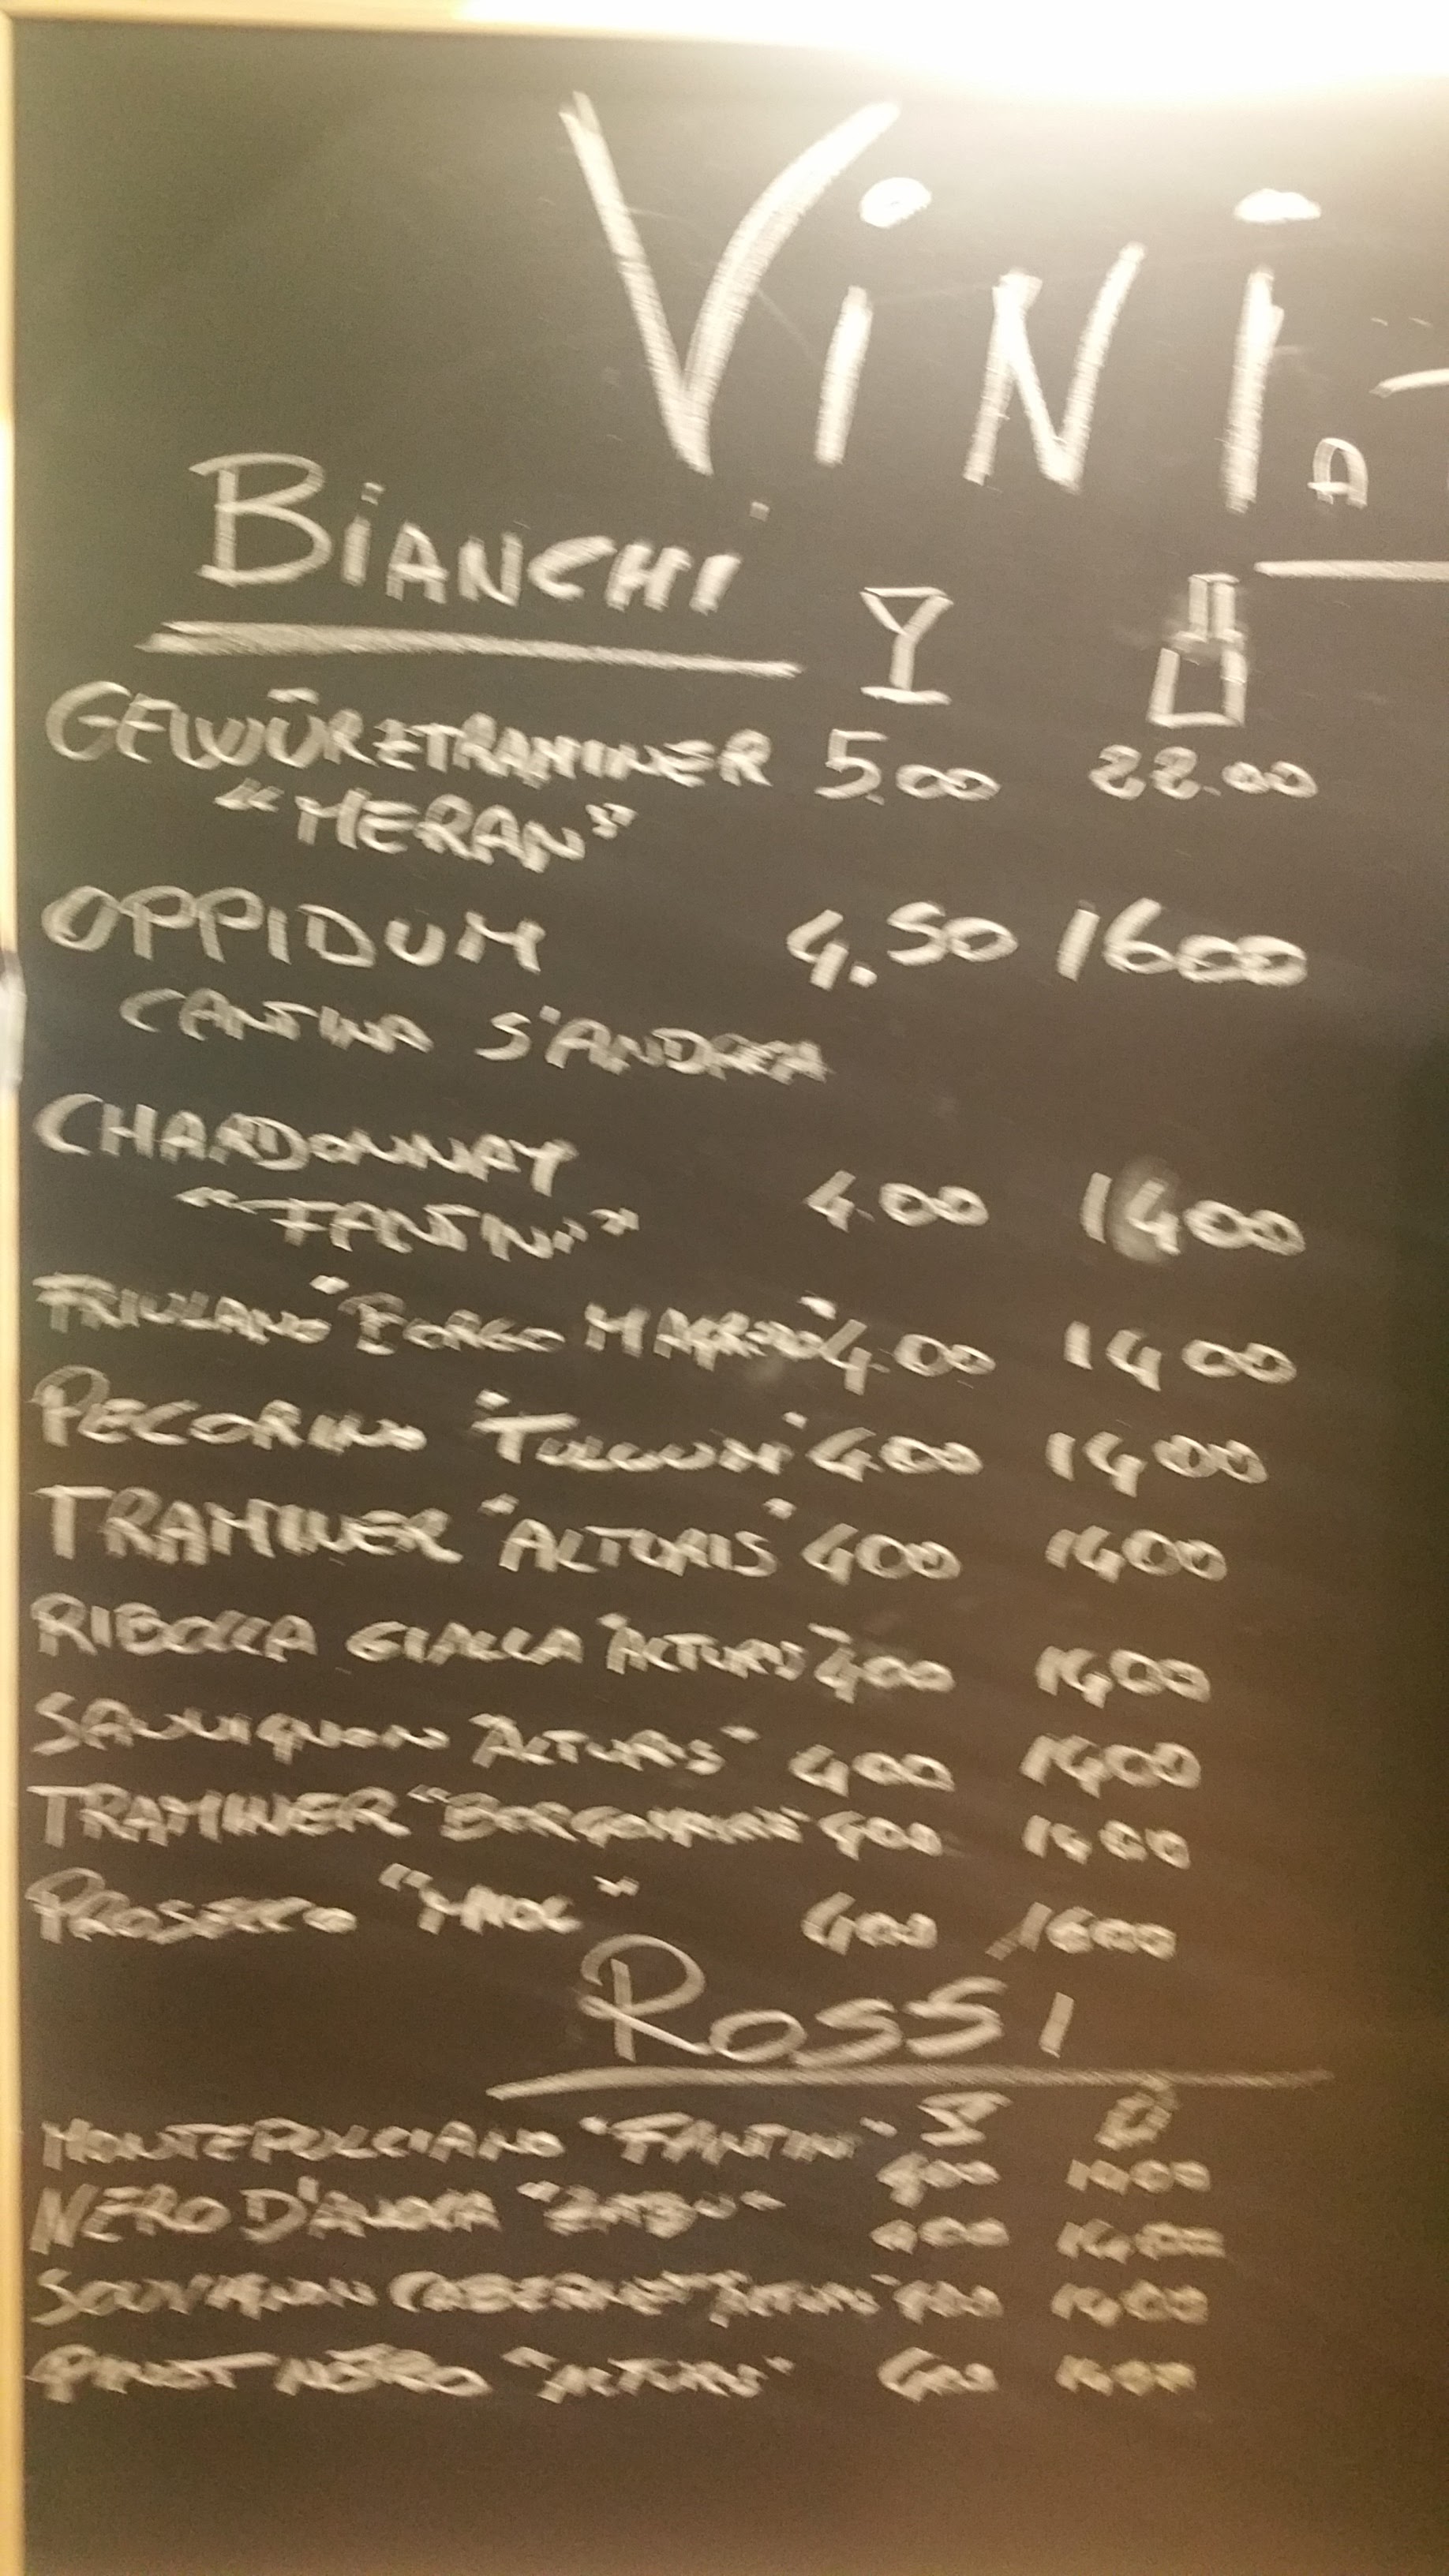 ViNi
A
BiANCHi
GEWÜRZTRAMINER 5.00 22.00
"MERAN"
OPPIDUM 4.50 1600
CANTINA S'ANDREA
CHARDONNAY
"FANTINI" 4.00 1400
FRIULANO "BORGO 4.00 1400
PECORINO 400 1400
TRAMINER "ALTURIS" 400 1400
RIBOLLA GIALLA "ALTURIS" 400 1400
SAUVIGNON "ALTURIS" 400 1400
TRAMINER 400 1400
PROSECCO 400 1600
ROSSI
MONTEPULCIANO "FANTINI" 400 1400
NERO D'AVOLA "ZABU" 400 1400
SAUVIGNON CABERNET 400 1400
PINOT NERO "ALTURIS" 400